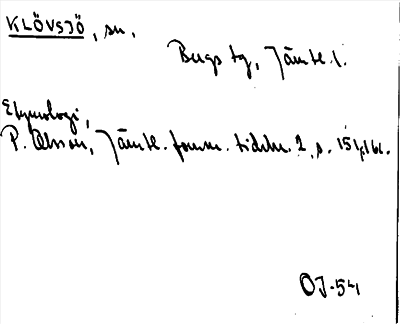 KLÖVSJÖ, sn.
Bergs tg, Jämtl. l.
Etymologi,
P. Olsson, Jämtl. fornm. tidskr. 2, s. 154,161.
OJ-54